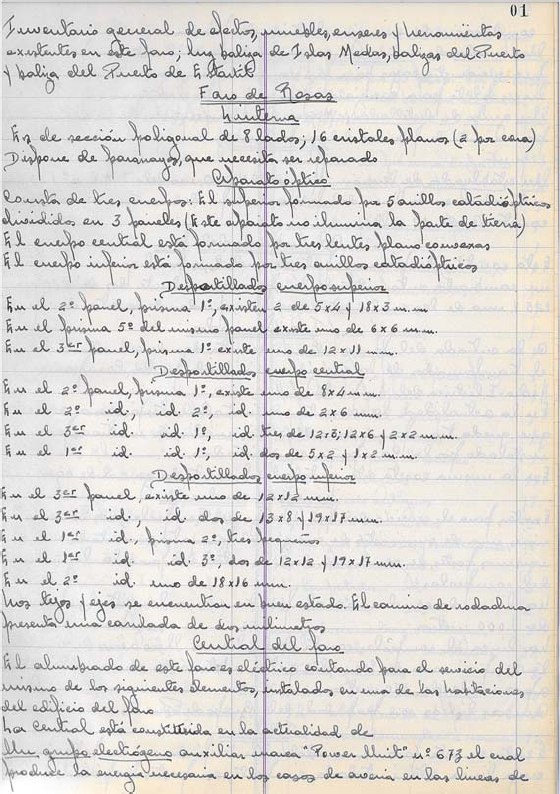 01
Inventario general de efectos, muebles, enseres y herramientas
existentes en este faro; luz baliza de Islas Medas, balizas del Puerto
y baliza del Puerto de Estartit
Faro de Rosas
Linterna
Es de sección poligonal de 8 lados; 16 cristales planos (2 por cara)
Dispone de pararrayos, que necesita ser reparado
Aparato óptico
Consta de tres cuerpos: El superior formado por 5 anillos catadióptricos
divididos en 3 paneles (Este aparato no ilumina la parte de tierra)
El cuerpo central está formado por tres lentes plano convexas
El cuerpo inferior está formado por tres anillos catadióptricos
Desportillados cuerpo superior
En el 2º panel, prisma 1º, existen 2 de 5x4 y 18x3 m.m.
En el prisma 5º del mismo panel existe uno de 6x6 m.m.
En el 3er panel, prisma 1º existe uno de 12x11 m.m.
Desportillados cuerpo central
En el 2º panel, prisma 1º, existe uno de 8x4 m.m.
En el 2º id. id. 2º, id. uno de 2x6 m.m.
En el 3er id. id. 1º, id. tres de 12x3; 12x6 y 2x2 m.m.
En el 1er id. id. 1º, id. dos de 5x2 y 1x2 m.m.
Desportillados cuerpo inferior
En el 3er panel, existe uno de 12x12 m.m.
En el 3er id., id. dos de 13x8 y 19x17 m.m.
En el 1er id., prisma 2º, tres pequeños
En el 1er id. id. 3º, dos de 12x12 y 19x17 m.m.
En el 2º id. uno de 18x16 m.m.
Los tejos y ejes se encuentran en buen estado. El camino de rodadura
presenta una canlada de dos milimetros
Central del faro
El alumbrado de este faro es eléctrico contando para el servicio del
mismo de los siguientes elementos, instalados en una de las habitaciones
del edificio del faro
La central está constituida en la actualidad de
Un grupo electrógeno auxiliar marca "Power Unit" nº 673 el cual
produce la energía necesaria en los casos de averia en las lineas de